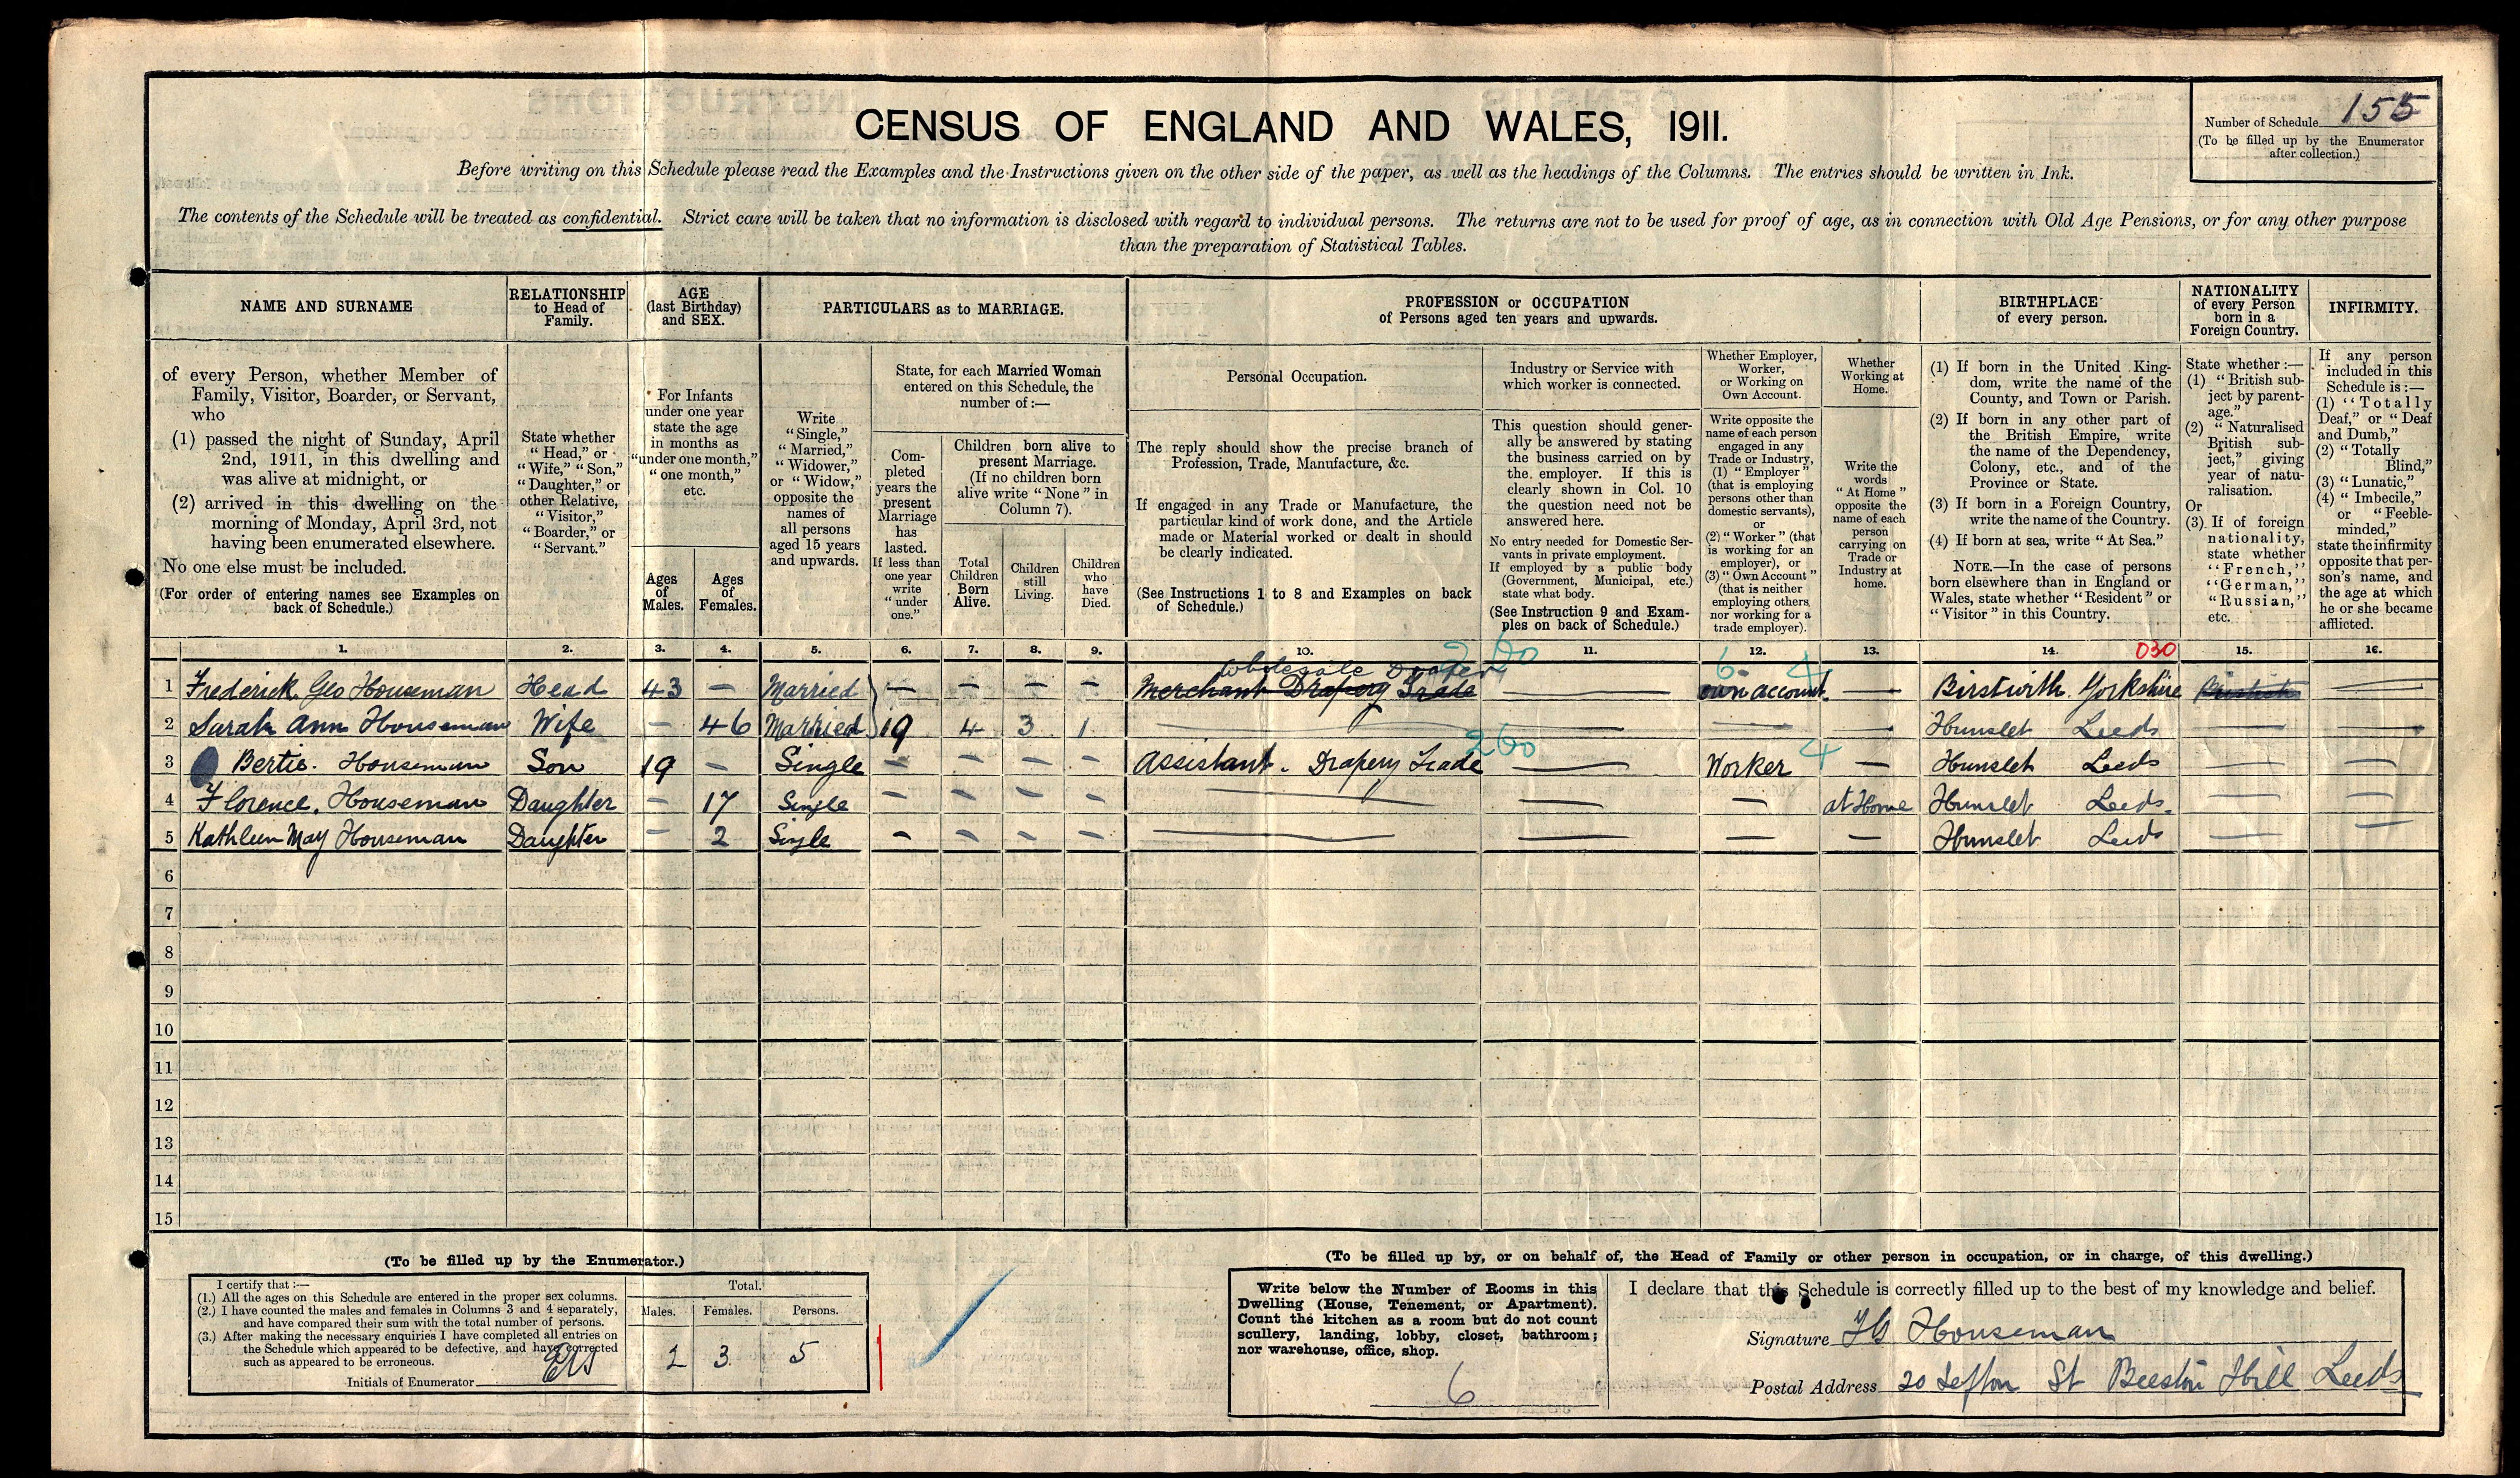 CENSUS OF ENGLAND AND WALES, 1911.
Number of Schedule 155
(To be filled up by the Enumerator
after collection.)
Before writing on this Schedule please read the Examples and the Instructions given on the other side of the paper, as well as the headings of the Columns. The entries should be written in Ink.
The contents of the Schedule will be treated as confidential. Strict care will be taken that no information is disclosed with regard to individual persons. The returns are not to be used for proof of age, as in connection with Old Age Pensions, or for any other purpose
than the preparation of Statistical Tables.
NAME AND SURNAME
of every Person, whether Member of
Family, Visitor, Boarder, or Servant,
who
(1) passed the night of Sunday, April
2nd, 1911, in this dwelling and
was alive at midnight, or
(2) arrived in this dwelling on the
morning of Monday, April 3rd, not
having been enumerated elsewhere.
No one else must be included.
(For order of entering names see Examples on
back of Schedule.)
RELATIONSHIP
to Head of
Family.
State whether
"Head," or
"Wife," "Son,"
"Daughter," or
other Relative,
"Visitor,"
"Boarder," or
"Servant."
AGE
(last Birthday)
and SEX.
For Infants
under one year
state the age
in months as
"under one month,"
"one month,"
etc.
Ages
of
Males.
Ages
of
Females.
PARTICULARS as to MARRIAGE.
Write
"Single,"
"Married,"
"Widower,"
or "Widow,"
opposite the
names of
all persons
aged 15 years
and upwards.
State, for each Married Woman
entered on this Schedule, the
number of :—
Com-
pleted
years the
present
Marriage
has
lasted.
If less than
one year
write
"under
one."
Children born alive to
present Marriage.
(If no children born
alive write "None" in
Column 7).
Total
Children
Born
Alive.
Children
still
Living.
Children
who
have
Died.
PROFESSION or OCCUPATION
of Persons aged ten years and upwards.
Personal Occupation.
The reply should show the precise branch of
Profession, Trade, Manufacture, &c.
If engaged in any Trade or Manufacture, the
particular kind of work done, and the Article
made or Material worked or dealt in should
be clearly indicated.
(See Instructions 1 to 8 and Examples on back
of Schedule.)
Industry or Service with
which worker is connected.
This question should gener-
ally be answered by stating
the business carried on by
the employer. If this is
clearly shown in Col. 10
the question need not be
answered here.
No entry needed for Domestic Ser-
vants in private employment.
If employed by a public body
(Government, Municipal, etc.)
state what body.
(See Instruction 9 and Exam-
ples on back of Schedule.)
Whether Employer,
Worker,
or Working on
Own Account.
Write opposite the
name of each person
engaged in any
Trade or Industry,
(1) "Employer"
(that is employing
persons other than
domestic servants),
or
(2) "Worker" (that
is working for an
employer), or
(3) "Own Account"
(that is neither
employing others
nor working for a
trade employer).
Whether
Working at
Home.
Write the
words
"At Home"
opposite the
name of each
person
carrying on
Trade or
Industry at
home.
BIRTHPLACE
of every person.
(1) If born in the United King-
dom, write the name of the
County, and Town or Parish.
(2) If born in any other part of
the British Empire, write
the name of the Dependency,
Colony, etc., and of the
Province or State.
(3) If born in a Foreign Country,
write the name of the Country.
(4) If born at sea, write "At Sea."
NOTE.—In the case of persons
born elsewhere than in England or
Wales, state whether "Resident" or
"Visitor" in this Country.
NATIONALITY
of every Person
born in a
Foreign Country.
State whether :—
(1) "British sub-
ject by parent-
age."
(2) "Naturalised
British sub-
ject," giving
year of natu-
ralisation.
Or
(3) If of foreign
nationality,
state whether
"French,"
"German,"
"Russian,"
etc.
INFIRMITY.
If any person
included in this
Schedule is :—
(1) "Totally
Deaf," or "Deaf
and Dumb,"
(2) "Totally
Blind,"
(3) "Lunatic,"
(4) "Imbecile,"
or "Feeble-
minded,"
state the infirmity
opposite that per-
son's name, and
the age at which
he or she became
afflicted.
1. 2. 3. 4. 5. 6. 7. 8. 9. 10. 11. 12. 13. 14. 030 15. 16.
Wholesale Draper
6 4
1 Frederick Geo Houseman Head 43 — Married — — — — Merchant Drapery Trade — own account — Birstwith Yorkshire British —
2 Sarah Ann Houseman Wife — 46 Married 19 4 3 1 — — — — Hunslet Leeds — —
260 4
3 Bertie. Houseman Son 19 — Single — — — — Assistant. Drapery Trade — Worker — Hunslet Leeds — —
4 Florence. Houseman Daughter — 17 Single — — — — — — — at Home Hunslet Leeds. — —
5 Kathleen May Houseman Daughter — 2 Single — — — — — — — — Hunslet Leeds — —
6
7
8
9
10
11
12
13
14
15
(To be filled up by the Enumerator.)
I certify that :—
(1.) All the ages on this Schedule are entered in the proper sex columns.
(2.) I have counted the males and females in Columns 3 and 4 separately,
and have compared their sum with the total number of persons.
(3.) After making the necessary enquiries I have completed all entries on
the Schedule which appeared to be defective, and have corrected
such as appeared to be erroneous.
Initials of Enumerator
Total.
Males. Females. Persons.
2 3 5
(To be filled up by, or on behalf of, the Head of Family or other person in occupation, or in charge, of this dwelling.)
Write below the Number of Rooms in this
Dwelling (House, Tenement, or Apartment).
Count the kitchen as a room but do not count
scullery, landing, lobby, closet, bathroom;
nor warehouse, office, shop.
6
I declare that this Schedule is correctly filled up to the best of my knowledge and belief.
Signature FG Houseman
Postal Address 20 Sefton St Beeston Hill Leeds